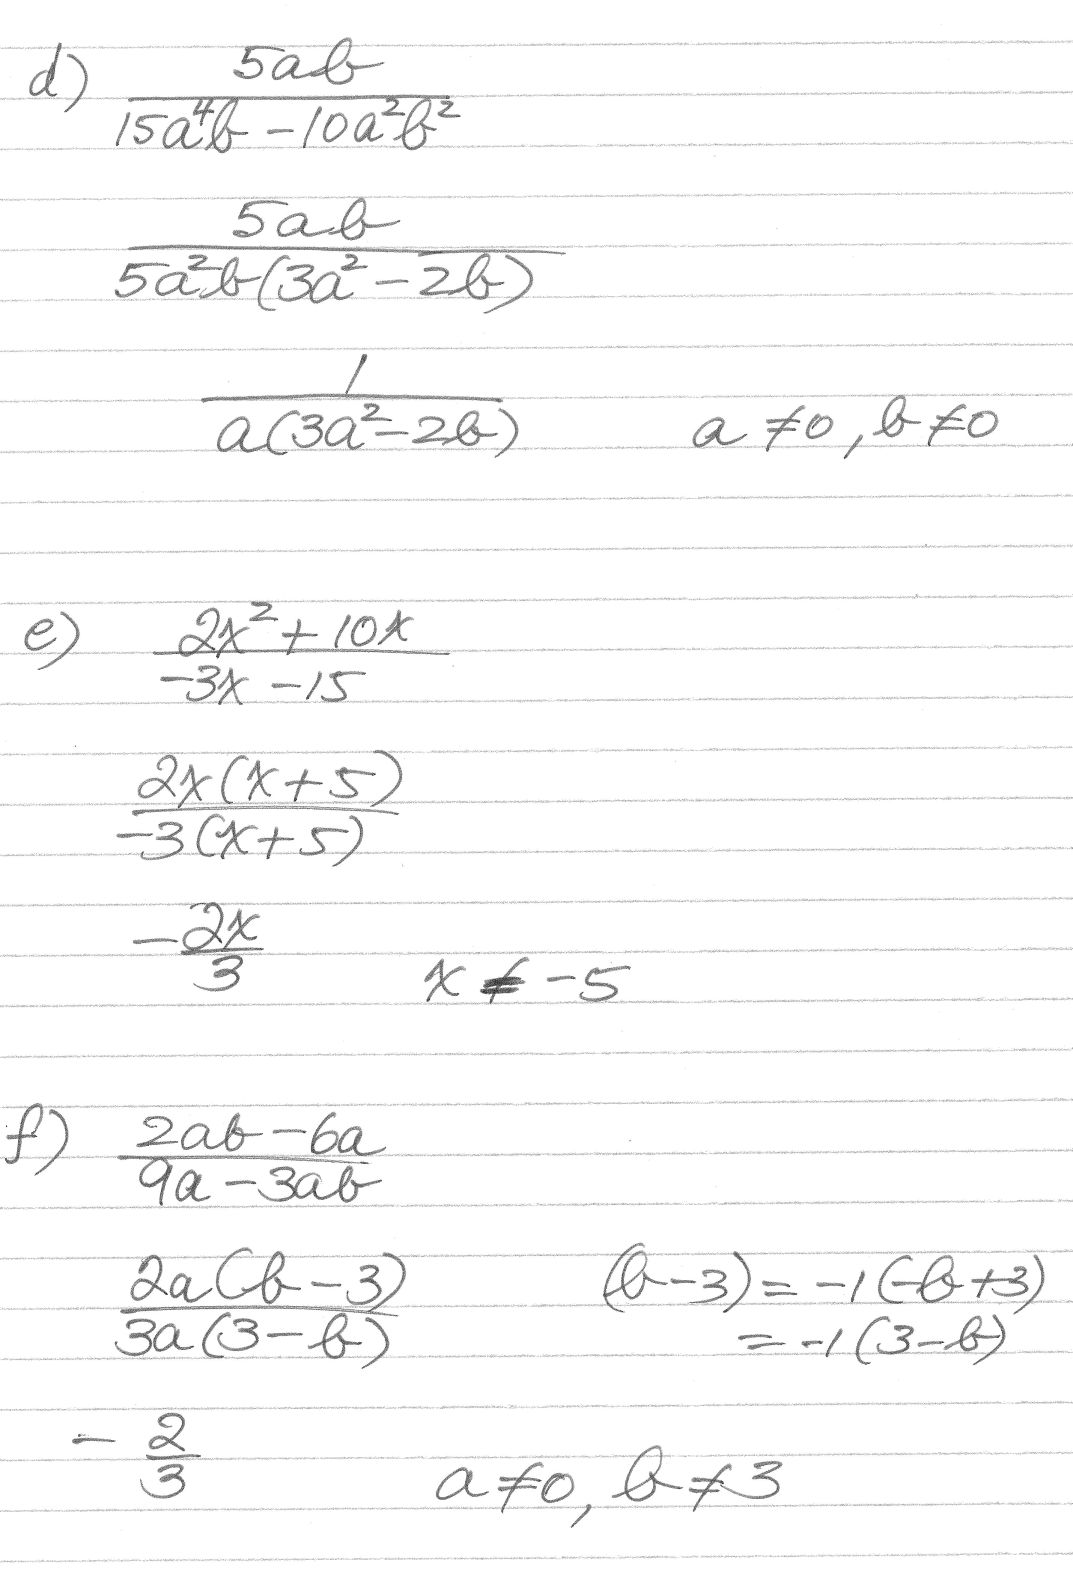 d) 5ab
15a⁴b - 10a²b²
5ab
5a²b(3a² - 2b)
1
a(3a² - 2b) a ≠ 0, b ≠ 0
e) 2x² + 10x
-3x - 15
2x(x + 5)
-3(x + 5)
- 2x
3 x ≠ -5
f) 2ab - 6a
9a - 3ab
2a(b - 3) (b - 3) = -1(-b + 3)
3a(3 - b) = -1(3 - b)
- 2
3 a ≠ 0, b ≠ 3